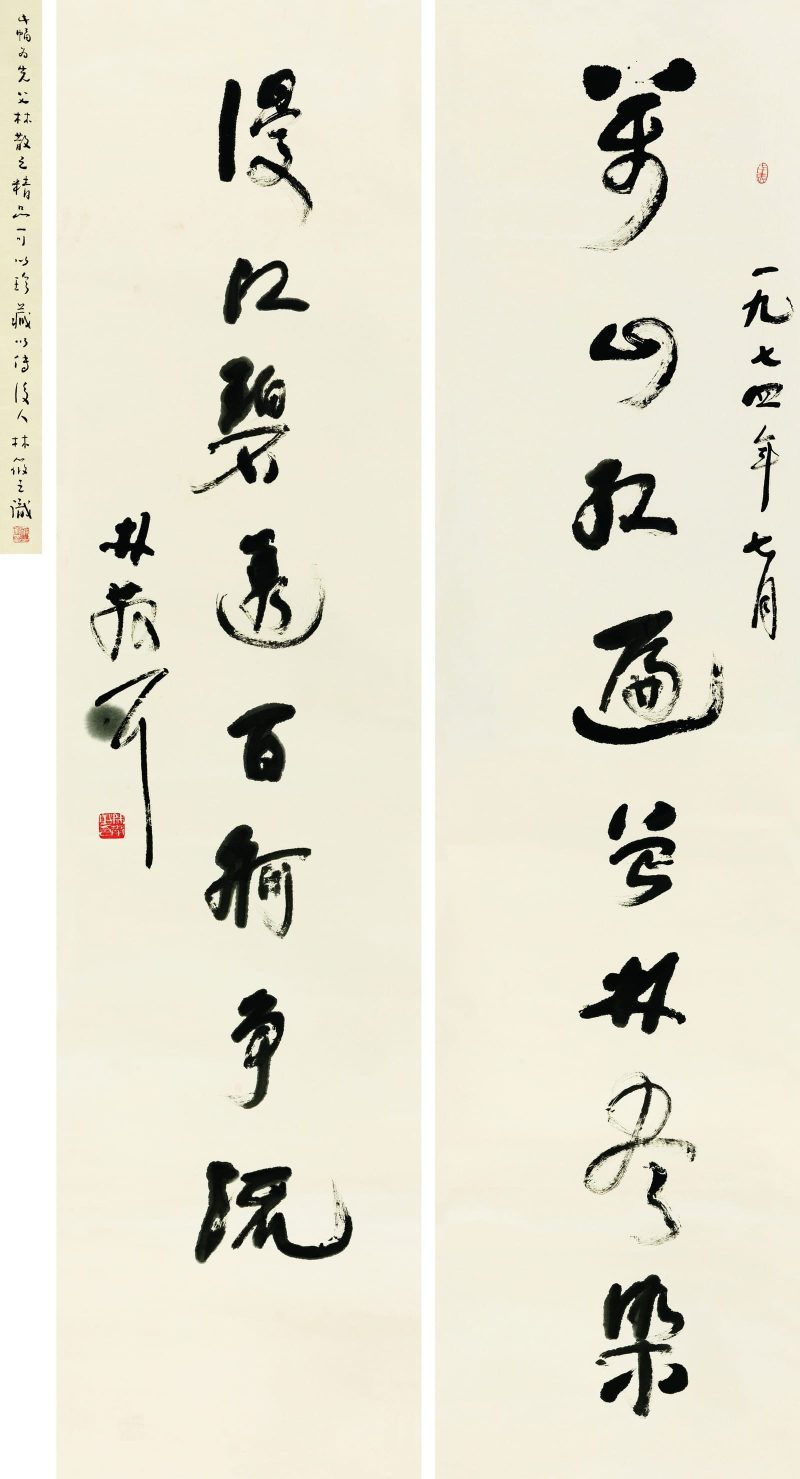 一九七四年七月
萬山紅遍曾林尽染
漫江碧透百舸争流
林散耳
此幅为先父林散之精品可以珍藏以傳後人林筱之識